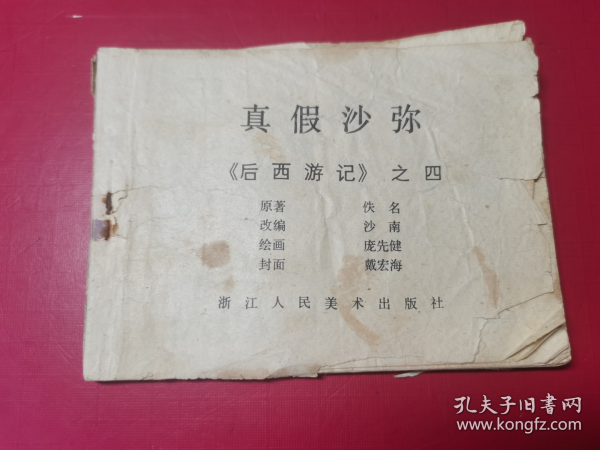 真假沙弥
《后西游记》之四
原著 佚名
改编 沙南
绘画 庞先健
封面 戴宏海
浙江人民美术出版社
孔夫子旧书网
www.kongfz.com